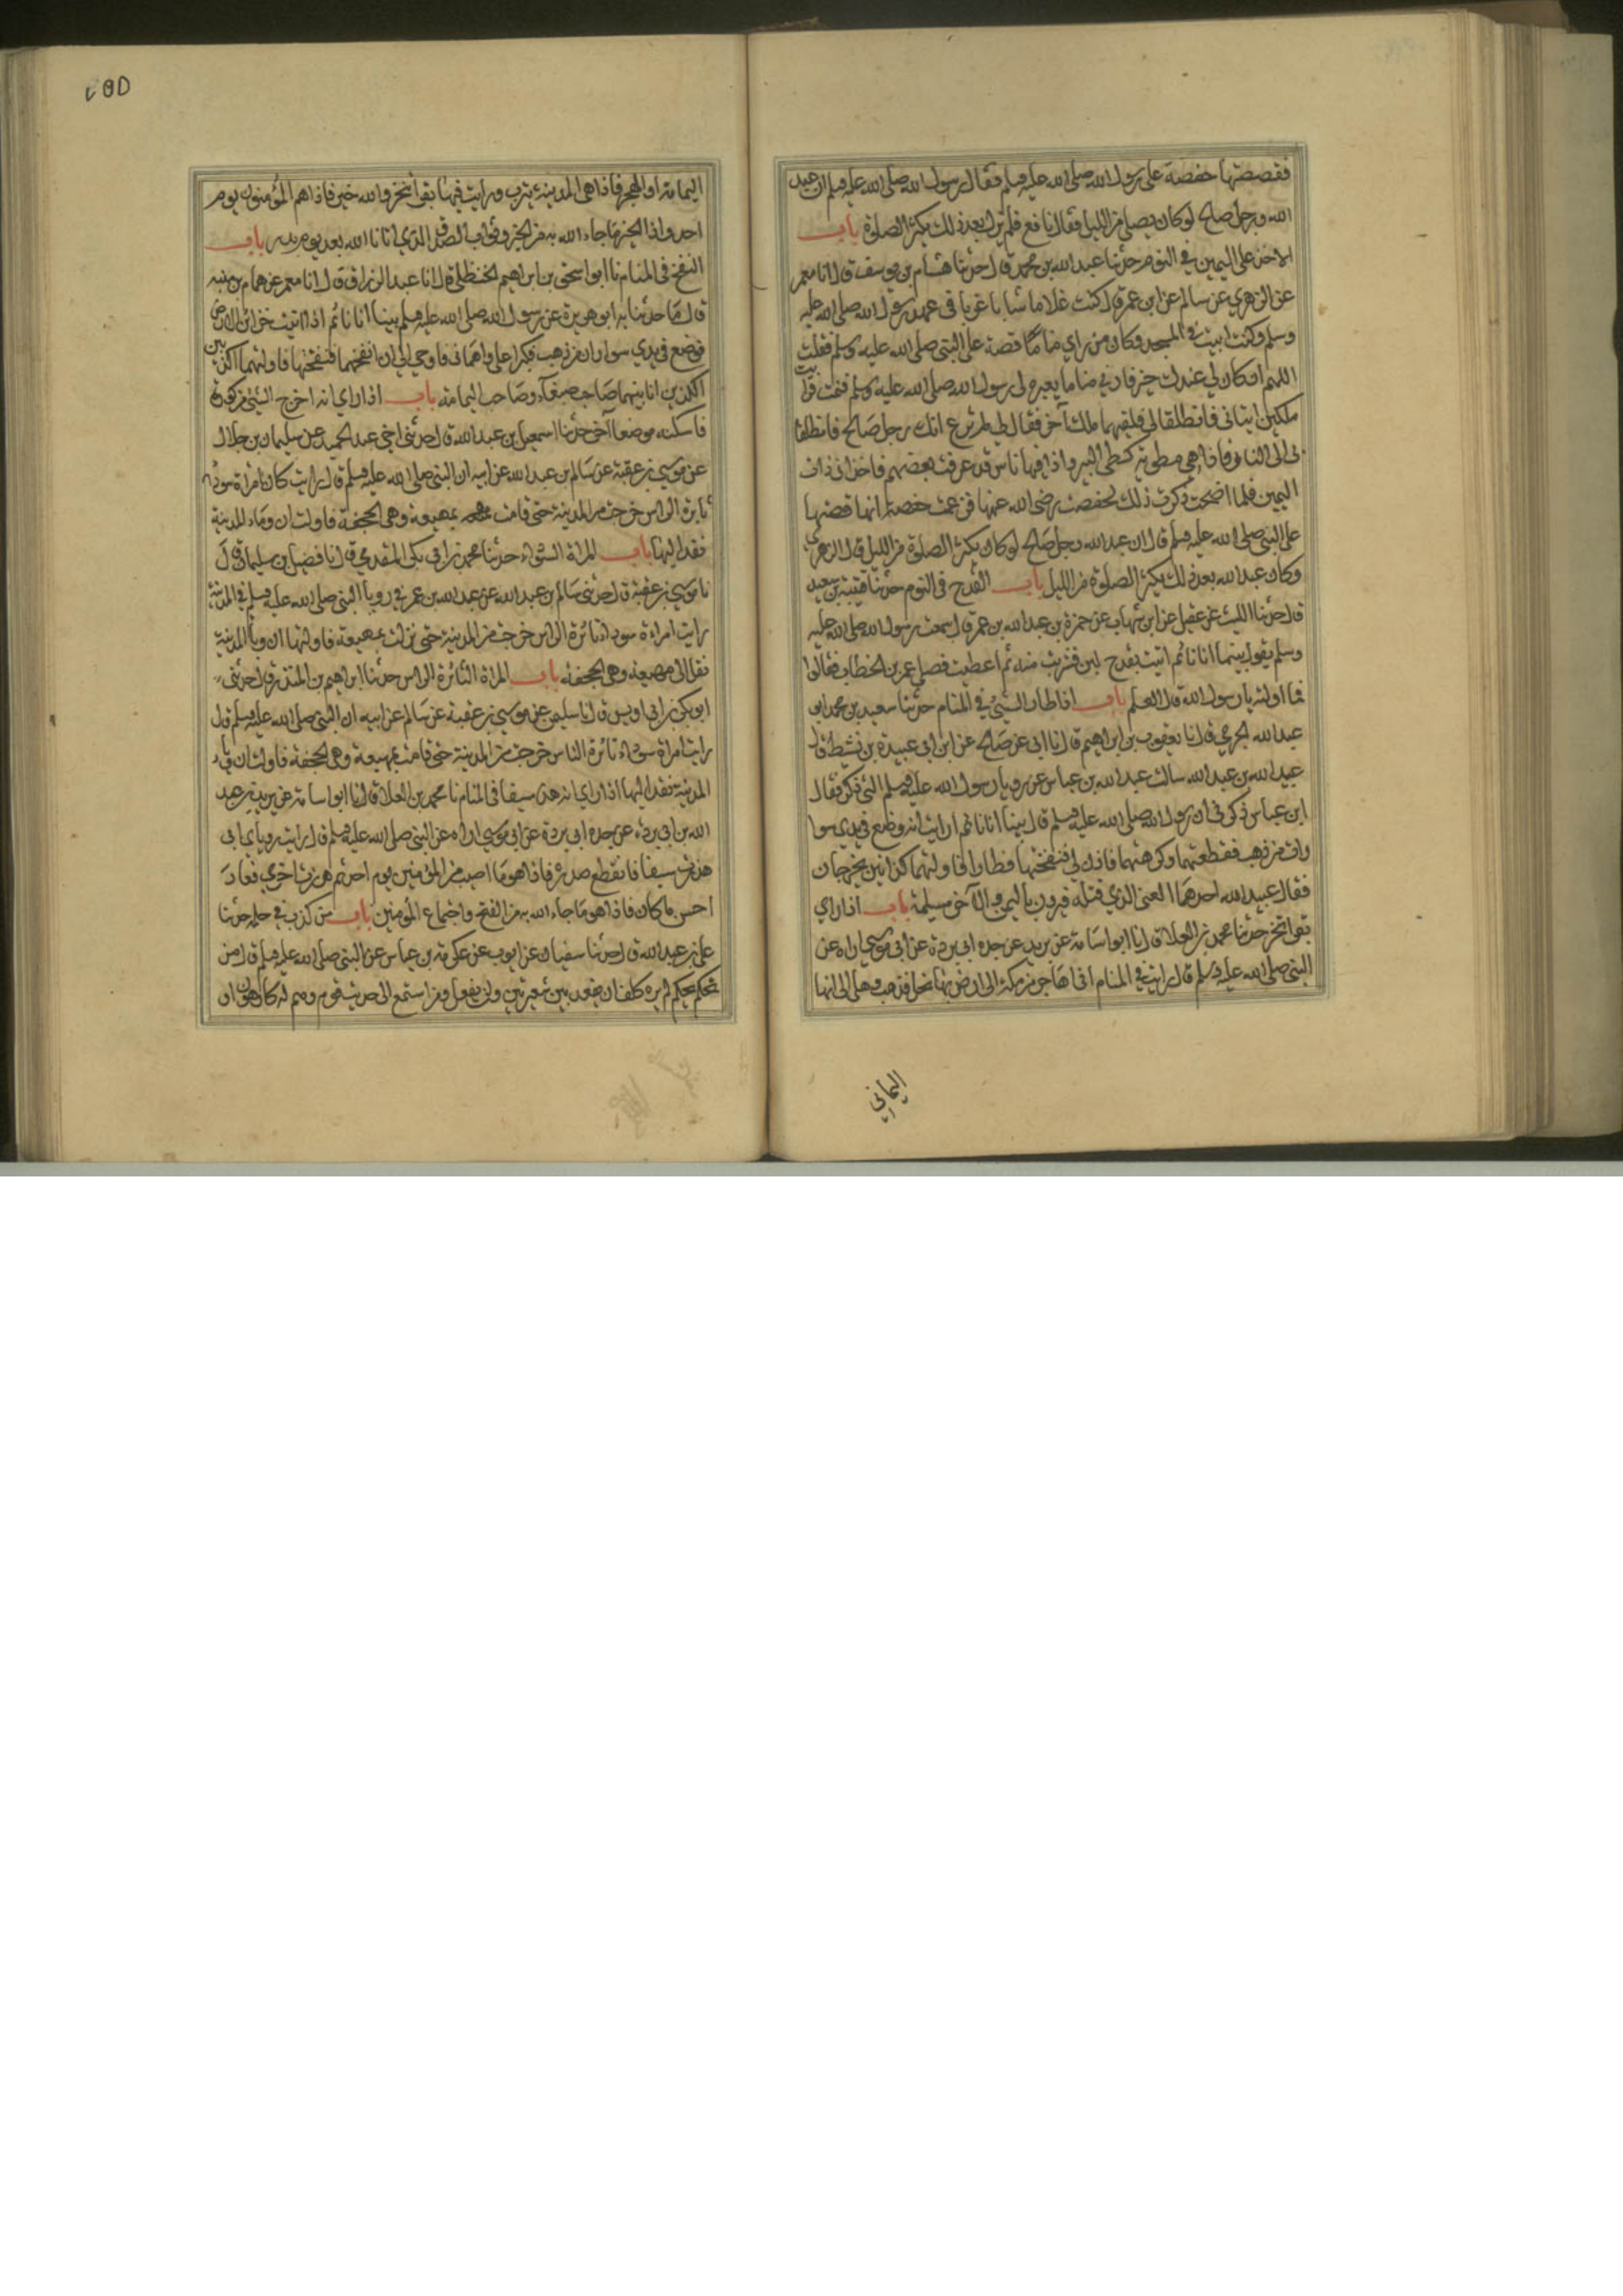 فقصصتها حفصة على رسول الله صلى الله عليه وسلم فقال رسول الله صلى الله عليه وسلم ان عبد
الله رجل صالح لو كان يصلي من الليل فقال نافع فلم يزل بعد ذلك يكثر الصلوة باب
الاخذ على اليمين في النوم حدثنا عبد الله بن محمد قال حدثنا هشام بن يوسف قال انا معمر
عن الزهري عن سالم عن ابن عمر قال كنت غلاما شابا عزبا في عهد رسول الله صلى الله عليه
وسلم وكنت ابيت في المسجد وكان من راي مناما قصه على النبي صلى الله عليه وسلم فقلت
اللهم ان كان لي عندك خير فارني مناما يعبره لي رسول الله صلى الله عليه وسلم فنمت فرايت
ملكين اتياني فانطلقا بي فلقيهما ملك آخر فقال لي لم ترع انك رجل صالح فانطلقا
بي الى النار فاذا هي مطوية كطي البير واذا فيها ناس قد عرفت بعضهم فاخذا بي ذات
اليمين فلما اصبحت ذكرت ذلك لحفصة رضي الله عنها فزعمت حفصة انها قصتها
على النبي صلى الله عليه وسلم قال ان عبد الله رجل صالح لو كان يكثر الصلوة من الليل قال الزهري
وكان عبد الله بعد ذلك يكثر الصلوة من الليل باب القدح في النوم حدثنا قتيبة بن سعيد
قال حدثنا الليث عن عقيل عن ابن شهاب عن حمزة بن عبد الله بن عمر قال سمعت رسول الله صلى الله عليه
وسلم يقول بينما انا نائم اتيت بقدح لبن فشربت منه ثم اعطيت فضلي عمر بن الخطاب فقالوا
فما اولته يا رسول الله قال العلم باب اذا طار الشيء في المنام حدثنا سعيد بن محمد ابو
عبد الله الجرمي قال نا يعقوب بن ابراهيم قال نا ابي عن صالح عن ابن ابي عبيدة بن نشيط قال
عبيد الله بن عبد الله سالت عبد الله بن عباس عن رويا رسول الله عليه وسلم التي ذكر فقال
ابن عباس ذكر لي ان رسول الله صلى الله عليه وسلم قال بينا انا نائم ارايت انه وضع في يدي سوا
ران من ذهب فقطعتهما وكرهتهما فاذن لي فنفختهما فطارا فاولتهما كذابين يخرجان
فقال عبيد الله احدهما العنسي الذي قتله فيروز باليمن والآخر مسيلمة باب اذا راي
بقرا تنحر حدثنا محمد بن العلا قال نا ابو اسامة عن بريد عن جده ابي بردة عن ابي موسى اراه عن
النبي صلى الله عليه وسلم قال رايت في المنام اني اهاجر من مكة الى ارض بها نخل فذهب وهلي الى انها
اليمانى
٢٥٥
اليمامة او الهجر فاذا هي المدينة يثرب ورايت فيها بقرا تنحر والله خير فاذا هم المؤمنون يوم
احد واذا الخير ما جاء الله به من الخير وثواب الصدق الذي اتانا الله بعد يوم بدر باب
النفخ في المنام نا ابو اسحق بن ابراهيم الحنظلي قال انا عبد الرزاق قال انا معمر عن همام بن منبه
قال هذا ما حدثنا به ابو هريرة عن رسول الله صلى الله عليه وسلم بينا انا نائم اذ اتيت خزائن الارض
فوضع في يدي سواران من ذهب فكبرا علي واهماني فاوحي الي ان انفخهما فنفختهما فاولتهما الكذابين
الكذابين انا بينهما صاحب صنعاء وصاحب اليمامة باب اذا راي انه اخرج الشيء من كورة
فاسكنه موضعا آخر حدثنا اسمعيل بن عبد الله قال حدثني اخي عبد الحميد عن سليمان بن بلال
عن موسى بن عقبة عن سالم بن عبد الله عن ابيه ان النبي صلى الله عليه وسلم قال رايت كان امراة سوداء
ثايرة الراس خرجت من المدينة حتى قامت بمهيعة وهي الجحفة فاولت ان وباء المدينة
نقل اليها باب المراة السوداء حدثنا محمد بن ابي بكر المقدمي قال نا فضيل بن سليمان قال
نا موسى بن عقبة قال حدثني سالم بن عبد الله عن عبد الله بن عمر في رويا النبي صلى الله عليه وسلم في المدينة
رايت امراة سوداء ثائرة الراس خرجت من المدينة حتى نزلت بمهيعة فاولتها ان وباء المدينة
نقل الى مهيعة وهي الجحفة باب المراة الثائرة الراس حدثنا ابراهيم بن المنذر قال حدثني
ابو بكر بن ابي اويس قال نا سليمن عن موسى بن عقبة عن سالم عن ابيه ان النبي صلى الله عليه وسلم قال
رايت امراة سوداء ثائرة الناس خرجت من المدينة حتى قامت بمهيعة وهي الجحفة فاولت ان وباء
المدينة نقل اليها اذا راي انه هز سيفا في المنام نا محمد بن العلا قال نا ابو اسامة عن بريد بن عبد
الله بن ابي بردة عن جده ابي بردة عن ابي موسى اراه عن النبي صلى الله عليه وسلم قال رايت في روياي اني
هززت سيفا فانقطع صدره فاذا هو ما اصيب من المؤمنين يوم احد ثم هززته اخري فعاد
احسن ما كان فاذا هو ما جاء الله به من الفتح واجتماع المؤمنين باب من كذب في حلمه حدثنا
علي بن عبد الله قال حدثنا سفيان عن ايوب عن عكرمة بن عباس عن النبي صلى الله عليه وسلم قال من
تحلم بحلم لم يره كلف ان يعقد بين شعيرتين ولن يفعل ومن استمع الى حديث قوم وهم له كارهون او